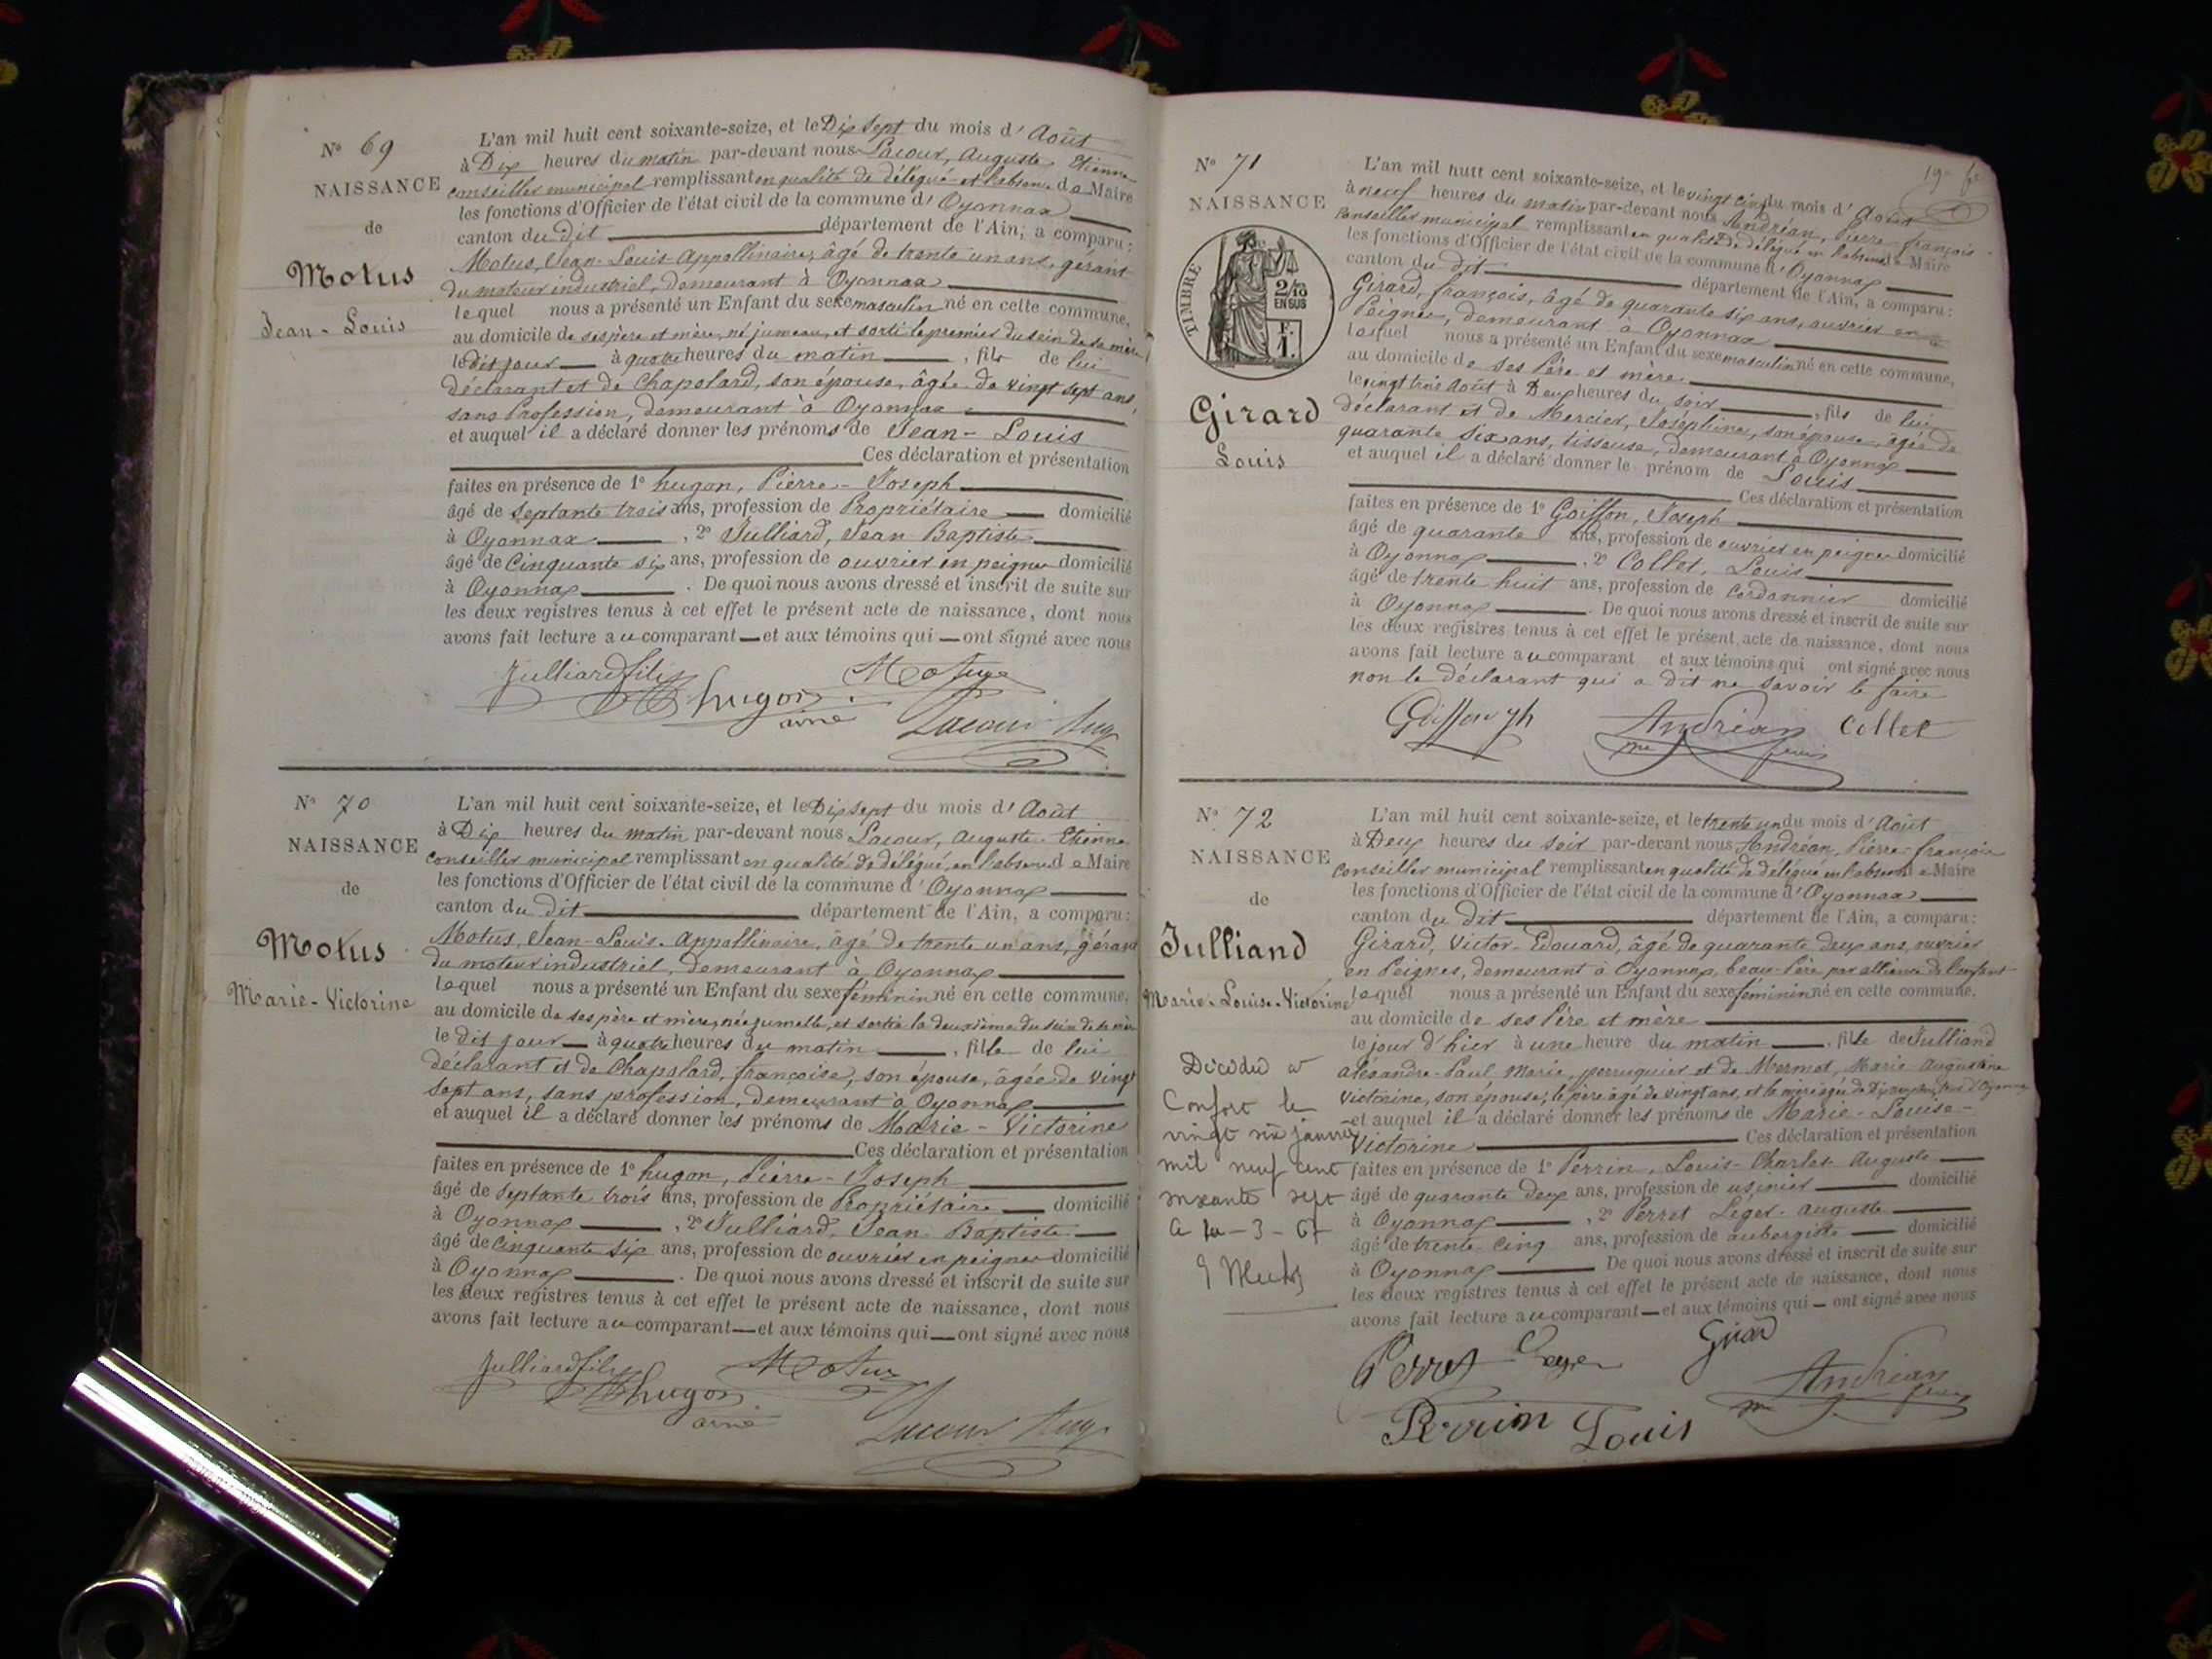 N° 69
NAISSANCE
de
Motus
Jean-Louis
L'an mil huit cent soixante-seize, et le Dix sept du mois d'Août
à Dix heures du matin par-devant nous Lacour, Auguste Etienne
conseiller municipal remplissant en qualité de délégué et l'absence de Maire
les fonctions d'Officier de l'état civil de la commune d'Oyonnax
canton du dit département de l'Ain, a comparu :
Motus, Jean-Louis Appollinaire, âgé de trente un ans, gérant
du moteur industriel, demeurant à Oyonnax
lequel nous a présenté un Enfant du sexe masculin né en cette commune,
au domicile de ses père et mère, né jumeau, et sorti le premier du sein de sa mère
le dit jour à quatre heures du matin, fils de lui
déclarant et de Chapolard, son épouse, âgée de vingt sept ans,
sans Profession, demeurant à Oyonnax
et auquel il a déclaré donner les prénoms de Jean-Louis
Ces déclaration et présentation
faites en présence de 1° hugon, Pierre-Joseph
âgé de Septante trois ans, profession de Propriétaire domicilié
à Oyonnax, 2° Julliard, Jean Baptiste
âgé de Cinquante six ans, profession de ouvrier en peignes domicilié
à Oyonnax. De quoi nous avons dressé et inscrit de suite sur
les deux registres tenus à cet effet le présent acte de naissance, dont nous
avons fait lecture au comparant et aux témoins qui ont signé avec nous
Julliard fils Motus
hugon
ainé Lacour Aug
N° 70
NAISSANCE
de
Motus
Marie-Victorine
L'an mil huit cent soixante-seize, et le Dix sept du mois d'Août
à Dix heures du matin par-devant nous Lacour, Auguste-Etienne
conseiller municipal remplissant en qualité de délégué, en l'absence de Maire
les fonctions d'Officier de l'état civil de la commune d'Oyonnax
canton du dit département de l'Ain, a comparu :
Motus, Jean-Louis-Appollinaire, âgé de trente un ans, gérant
du moteur industriel, demeurant à Oyonnax
lequel nous a présenté un Enfant du sexe féminin né en cette commune,
au domicile de ses père et mère, née jumelle, et sortie la deuxième du sein de sa mère
le dit jour à quatre heures du matin, fille de lui
déclarant et de Chapolard, françoise, son épouse, âgée de vingt
sept ans, sans profession, demeurant à Oyonnax
et auquel il a déclaré donner les prénoms de Marie-Victorine
Ces déclaration et présentation
faites en présence de 1° hugon, Pierre-Joseph
âgé de Septante trois ans, profession de Propriétaire domicilié
à Oyonnax, 2° Julliard, Jean Baptiste
âgé de Cinquante six ans, profession de ouvrier en peignes domicilié
à Oyonnax. De quoi nous avons dressé et inscrit de suite sur
les deux registres tenus à cet effet le présent acte de naissance, dont nous
avons fait lecture au comparant et aux témoins qui ont signé avec nous
Julliard fils Motus
hugon
ainé Lacour Aug
19
N° 71
NAISSANCE
TIMBRE
2/10
EN SUS
F.
1.
Girard
Louis
L'an mil huit cent soixante-seize, et le vingt cinq du mois d'Août
à neuf heures du matin par-devant nous Andréan, Pierre-françois
conseiller municipal remplissant en qualité de délégué en l'absence de Maire
les fonctions d'Officier de l'état civil de la commune d'Oyonnax
canton du dit département de l'Ain, a comparu :
Girard, françois, âgé de quarante six ans, ouvrier en
Peignes, demeurant à Oyonnax
lequel nous a présenté un Enfant du sexe masculin né en cette commune,
au domicile de ses Père et mère
le vingt trois août à Deux heures du soir, fils de lui
déclarant et de Mercier, Joséphine, son épouse, âgée de
quarante six ans, tisseuse, demeurant à Oyonnax
et auquel il a déclaré donner le prénom de Louis
Ces déclaration et présentation
faites en présence de 1° Goiffon, Joseph
âgé de quarante ans, profession de ouvrier en peignes domicilié
à Oyonnax, 2° Collet, Louis
âgé de trente huit ans, profession de Cordonnier domicilié
à Oyonnax. De quoi nous avons dressé et inscrit de suite sur
les deux registres tenus à cet effet le présent acte de naissance, dont nous
avons fait lecture au comparant et aux témoins qui ont signé avec nous
non le déclarant qui a dit ne savoir le faire
Goiffon jh Andréan Collet
N° 72
NAISSANCE
de
Julliand
Marie-Louise-Victorine
Décédée à
Confort le
vingt six janvier
mil neuf cent
soixante sept
L'an mil huit cent soixante-seize, et le trente un du mois d'Août
à Deux heures du soir par-devant nous Andréan, Pierre-françois
conseiller municipal remplissant en qualité de délégué en l'absence de Maire
les fonctions d'Officier de l'état civil de la commune d'Oyonnax
canton du dit département de l'Ain, a comparu :
Girard, Victor-Edouard, âgé de quarante deux ans, ouvrier
en Peignes, demeurant à Oyonnax, beau-Père par alliance de l'enfant
lequel nous a présenté un Enfant du sexe féminin né en cette commune,
au domicile de ses Père et mère
le jour d'hier à une heure du matin, fille de Julliand
alésandre-Paul Marie, perruquier et de Mermet, Marie Augustine
Victorine, son épouse, le père âgé de vingt ans, et la mère âgée de
et auquel il a déclaré donner les prénoms de Marie-Louise-
Victorine Ces déclaration et présentation
faites en présence de 1° Perrin, Louis-Charles-Auguste
âgé de quarante deux ans, profession de usinier domicilié
à Oyonnax, 2° Perret Léger-Auguste
âgé de trente-cinq ans, profession de aubergiste domicilié
à Oyonnax De quoi nous avons dressé et inscrit de suite sur
les deux registres tenus à cet effet le présent acte de naissance, dont nous
avons fait lecture au comparant et aux témoins qui ont signé avec nous
Perret Leger Girard
Andréan
Perrin Louis